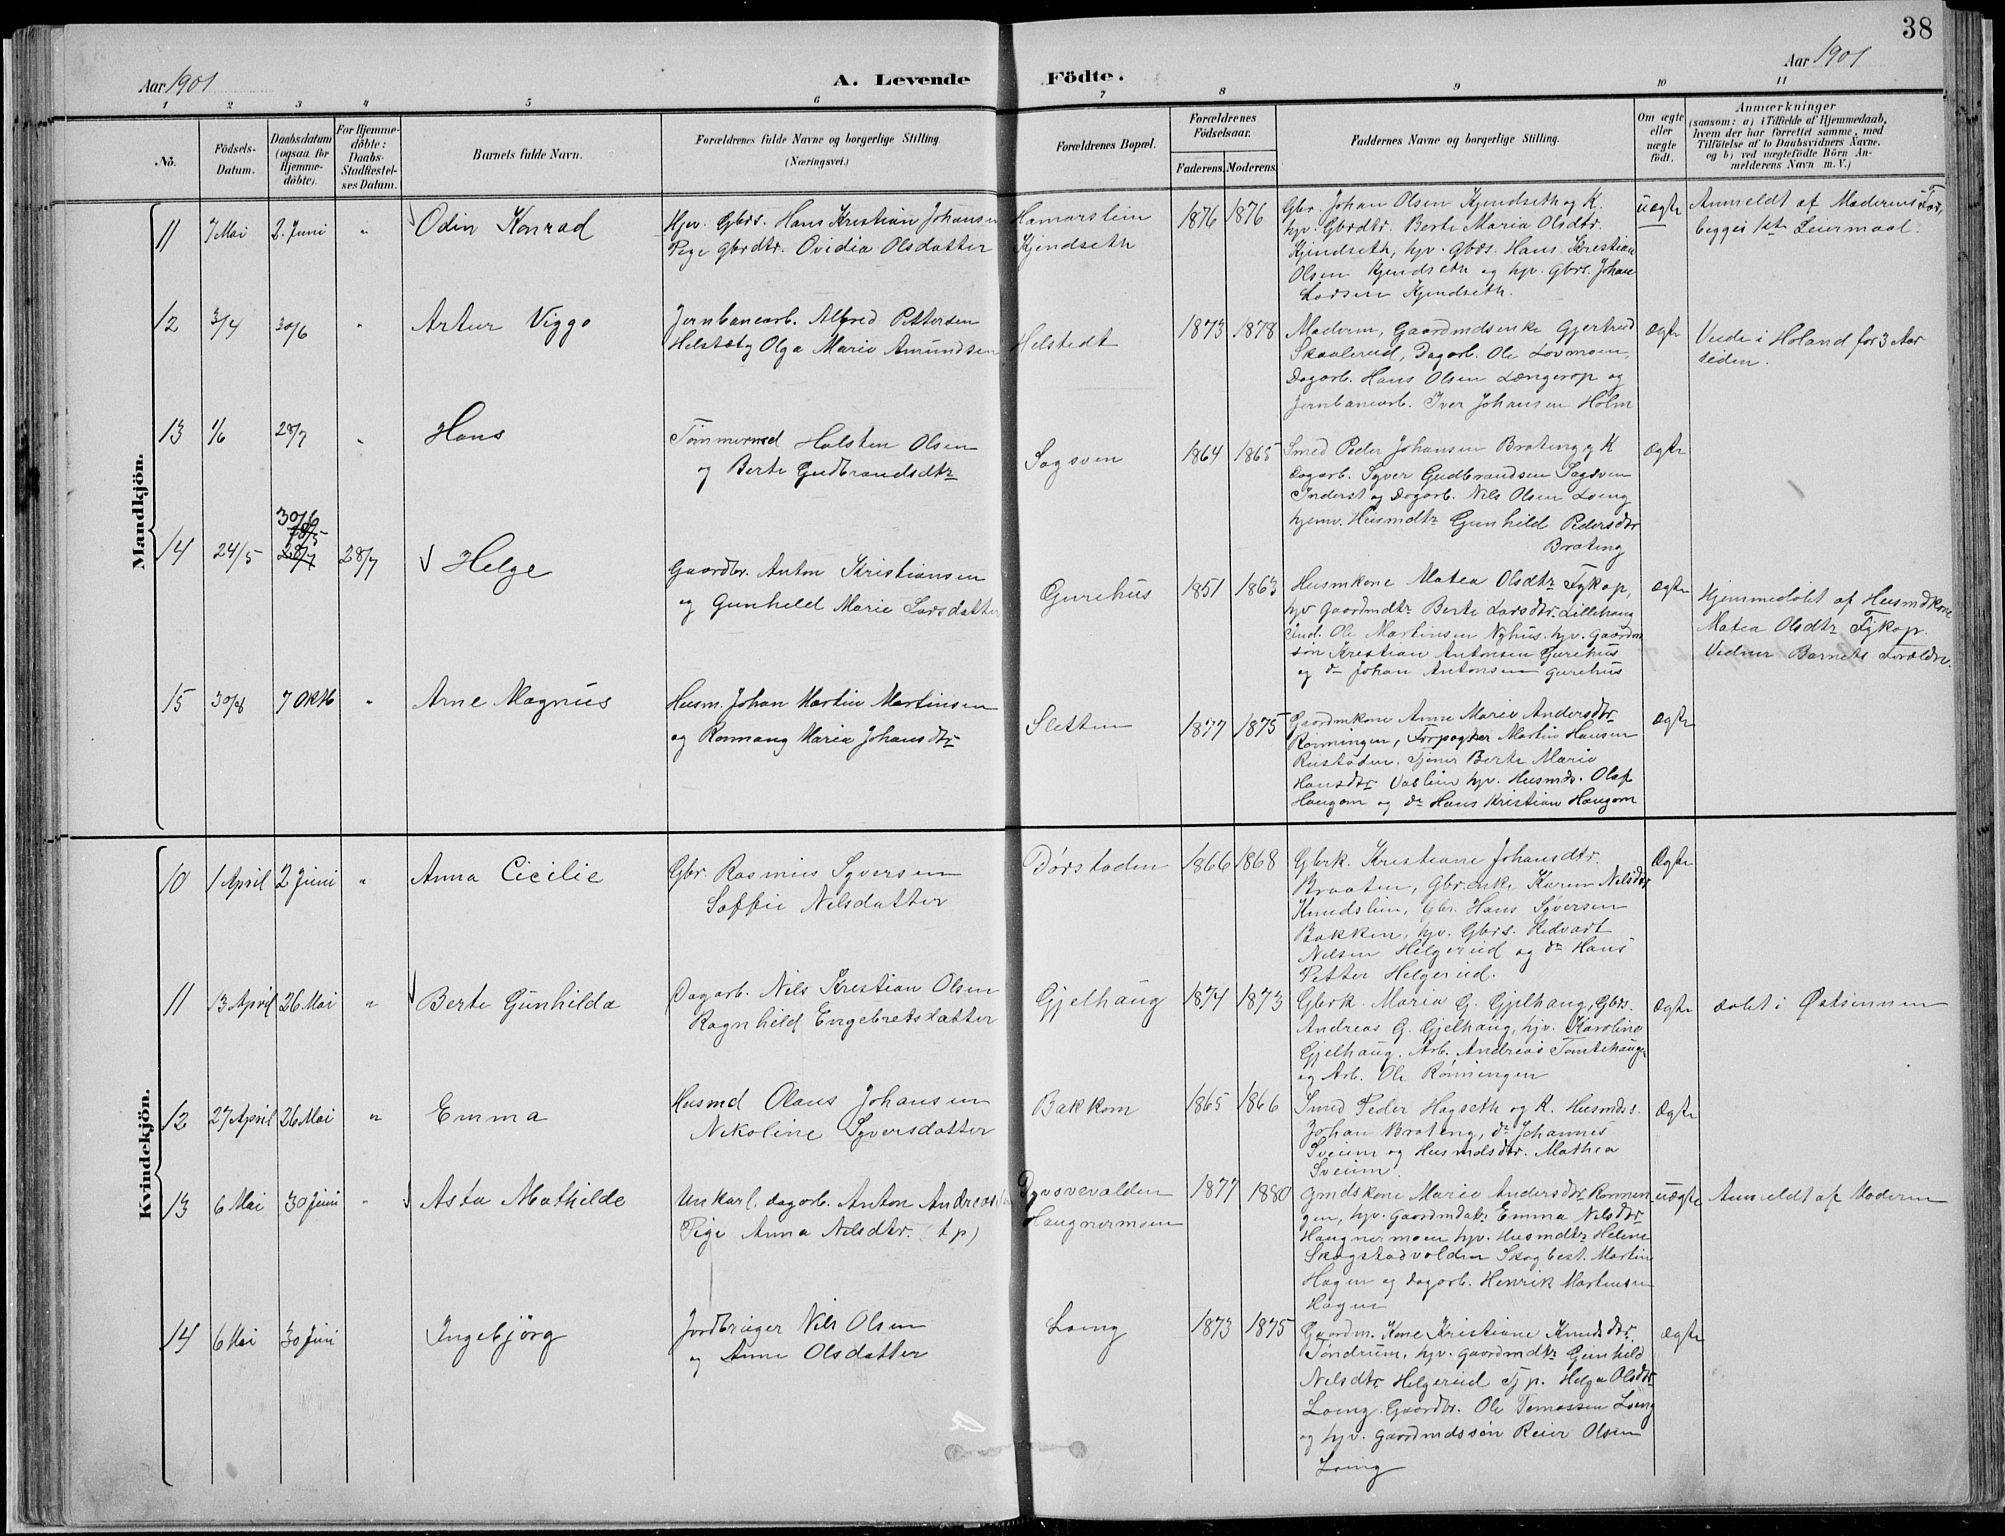 38
Aar 1901
A. Levende Födte.
Aar 1901
1 2 3 4 5 6 7 8 9 10 11
No.
Födsels-Datum.
Daabsdatum (ogsaa for Hjemme-döbte).
For Hjemme-döbte: Daabs-Stadfestel-ses Datum.
Barnets fulde Navn.
Forældrenes fulde Navne og borgerlige Stilling
(Næringsvei.)
Forældrenes Bopæl.
Forældrenes Födselsaar.
Faderens. Moderens.
Faddernes Navne og borgerlige Stilling.
Om ægte eller uægte födt.
Anmærkninger
(saasom: a) i Tilfælde af Hjemmedaab,
hvem der har forrettet samme, med
Tilföielse af to Daabsvidners Navne.
og b) ved uægtefödte Börn An-
melderens Navn m. V.)
Mandkjön.
11 7 Mai 2. Juni " Odin Konrad
Hjv. Gbrs. Hans Kristian Johansen
Pige Gbrdtr. Ovidia Olsdatter
Hamarstein
Kjendseth
1876 1876
Gbr. Johan Olsen Kjendseth og K.
hjv. Gbrdtr. Berte Maria Olsdtr.
Kjendseth, hjv. Gbrs. Hans Kristian
Olsen Kjendseth og hjv. Gbrs. Johan
Larsen Kjendseth.
uægte
Anmeldt af Moderens Far,
begges 1ste Leiermaal.
12 3/4 30/6 " Artur Viggo
Jernbanearb. Alfred Pettersen
Helstedt og Olga Marie Amundsen
Helstedt
1873 1878
Moderen, Gaardmdsenke Gjertrud
Skaalerud, Dagarb. Ole Lovmoen,
Dagarb. Hans Olsen Længerop og
Jernbanearb. Iver Johansen Holm
ægte
Viede i Høland for 3 Aar
siden.
13 1/6 28/7 " Hans
Tømmermd Halsten Olsen
og Berte Gudbrandsdtr
Sagsven
1864 1865
Smed Peder Johansen Brateng og K
Dagarb. Syver Gudbrandsen Sagsven
Inderst og Dagarb. Nils Olsen Loeng
hjemv. Husmdtr Gunhild Pedersdtr
Brateng
ægte
14 24/5 30/6 28/7 28/7 Helge
Gaardbr. Anton Kristiansen
og Gunhild Marie Larsdatter
Gurehus
1851 1863
Husmkone Matea Olsdtr Fykop,
hjv Gaardmdtr Berte Larsdtr. Lillehaug
Ind. Ole Martinsen Nyhus. hjv. Gaardm
søn Kristian Antonsen Gurehus
og do Johan Antonsen Gurehus
ægte
Hjemmedøbt af Husmdkone
Matea Olsdtr Fykop.
Vidner Barnets Forældre.
15 30/8 7 Oktb " Arne Magnus
Husm. Johan Martin Martinsen
og Ronnaug Marie Johansdtr
Sletten
1877 1875
Gaardmkone Anne Marie Andersdtr
Rønningen, Forpagter Martin Hansen
Rustaden. Tjener Berte Marie
Hansdtr Vaslien hjv. Husmds. Olaf
Haugom og do Hans Kristian Haugom
ægte
Kvindekjön.
10 1 April 2 Juni " Anna Cicilie
Gbr. Rasmus Syversen
Soffie Nilsdatter
Dørstaden
1866 1868
Gbrk. Kristiane Johansdtr.
Braaten, Gbr.enke Karen Nilsdtr
Knudslien, Gbr. Hans Syversen
Bakken, hjv. Gbrs. Hedvart
Nilsen Helgerud og do Hans
Petter Helgerud.
ægte
11 13 April 26 Mai " Berte Gunhilda
Dagarb. Nils Kristian Olsen
Ragnhild Engebretsdatter
Gjelhaug
1874 1873
Gbrk. Maria G. Gjelhaug, Gbrs.
Andreas G. Gjelhaug, hjv. Karoline
Gjelhaug. Arb. Andreas Tomtehaugen
og Arb. Ole Rønningen
ægte døbt i Østsinnen
12 27 April 26 Mai " Emma
Husmd Olaus Johansen
Nikoline Syversdatter
Bakkom
1865 1866
Smed Peder Hagseth og K. Husmds.
Johan Brateng, do Johannes
Sveum og Husmdsdtr. Mathea
Sveum
ægte
13 6 Mai 30 Juni " Asta Mathilde
Unkarl. dagarb. Anton Andreas
Pige Anna Nilsdtr. (tp)
Haugnermoen
1877 1880
Gmdskone Marie Andersdtr Rønnin
gen, hjv. Gaardmdatr Emma Nilsdtr
Haugnermoen hjv. Husmdtr Helene
Skogstadvolden Skogbest. Martin
Hagen og Dagarb. Henrik Martinsen
Hagen
uægte Anmeldt af Moderen
14 6 Mai 30 Juni Ingebjörg
Jordbruger Nils Olsen
og Anne Olsdatter
Loeng
1873 1875
Gaardm. Kone Kristiane Knudsdtr.
Tøndrum, hjv. Gaardmdtr Gunhild
Nilsdtr Helgerud Tj p. Helga Olsdtr
Loeng. Gaardbr. Ole Tomassen Loeng
og hjv. Gaardmdssøn Reier Olsen
Loeng
ægte